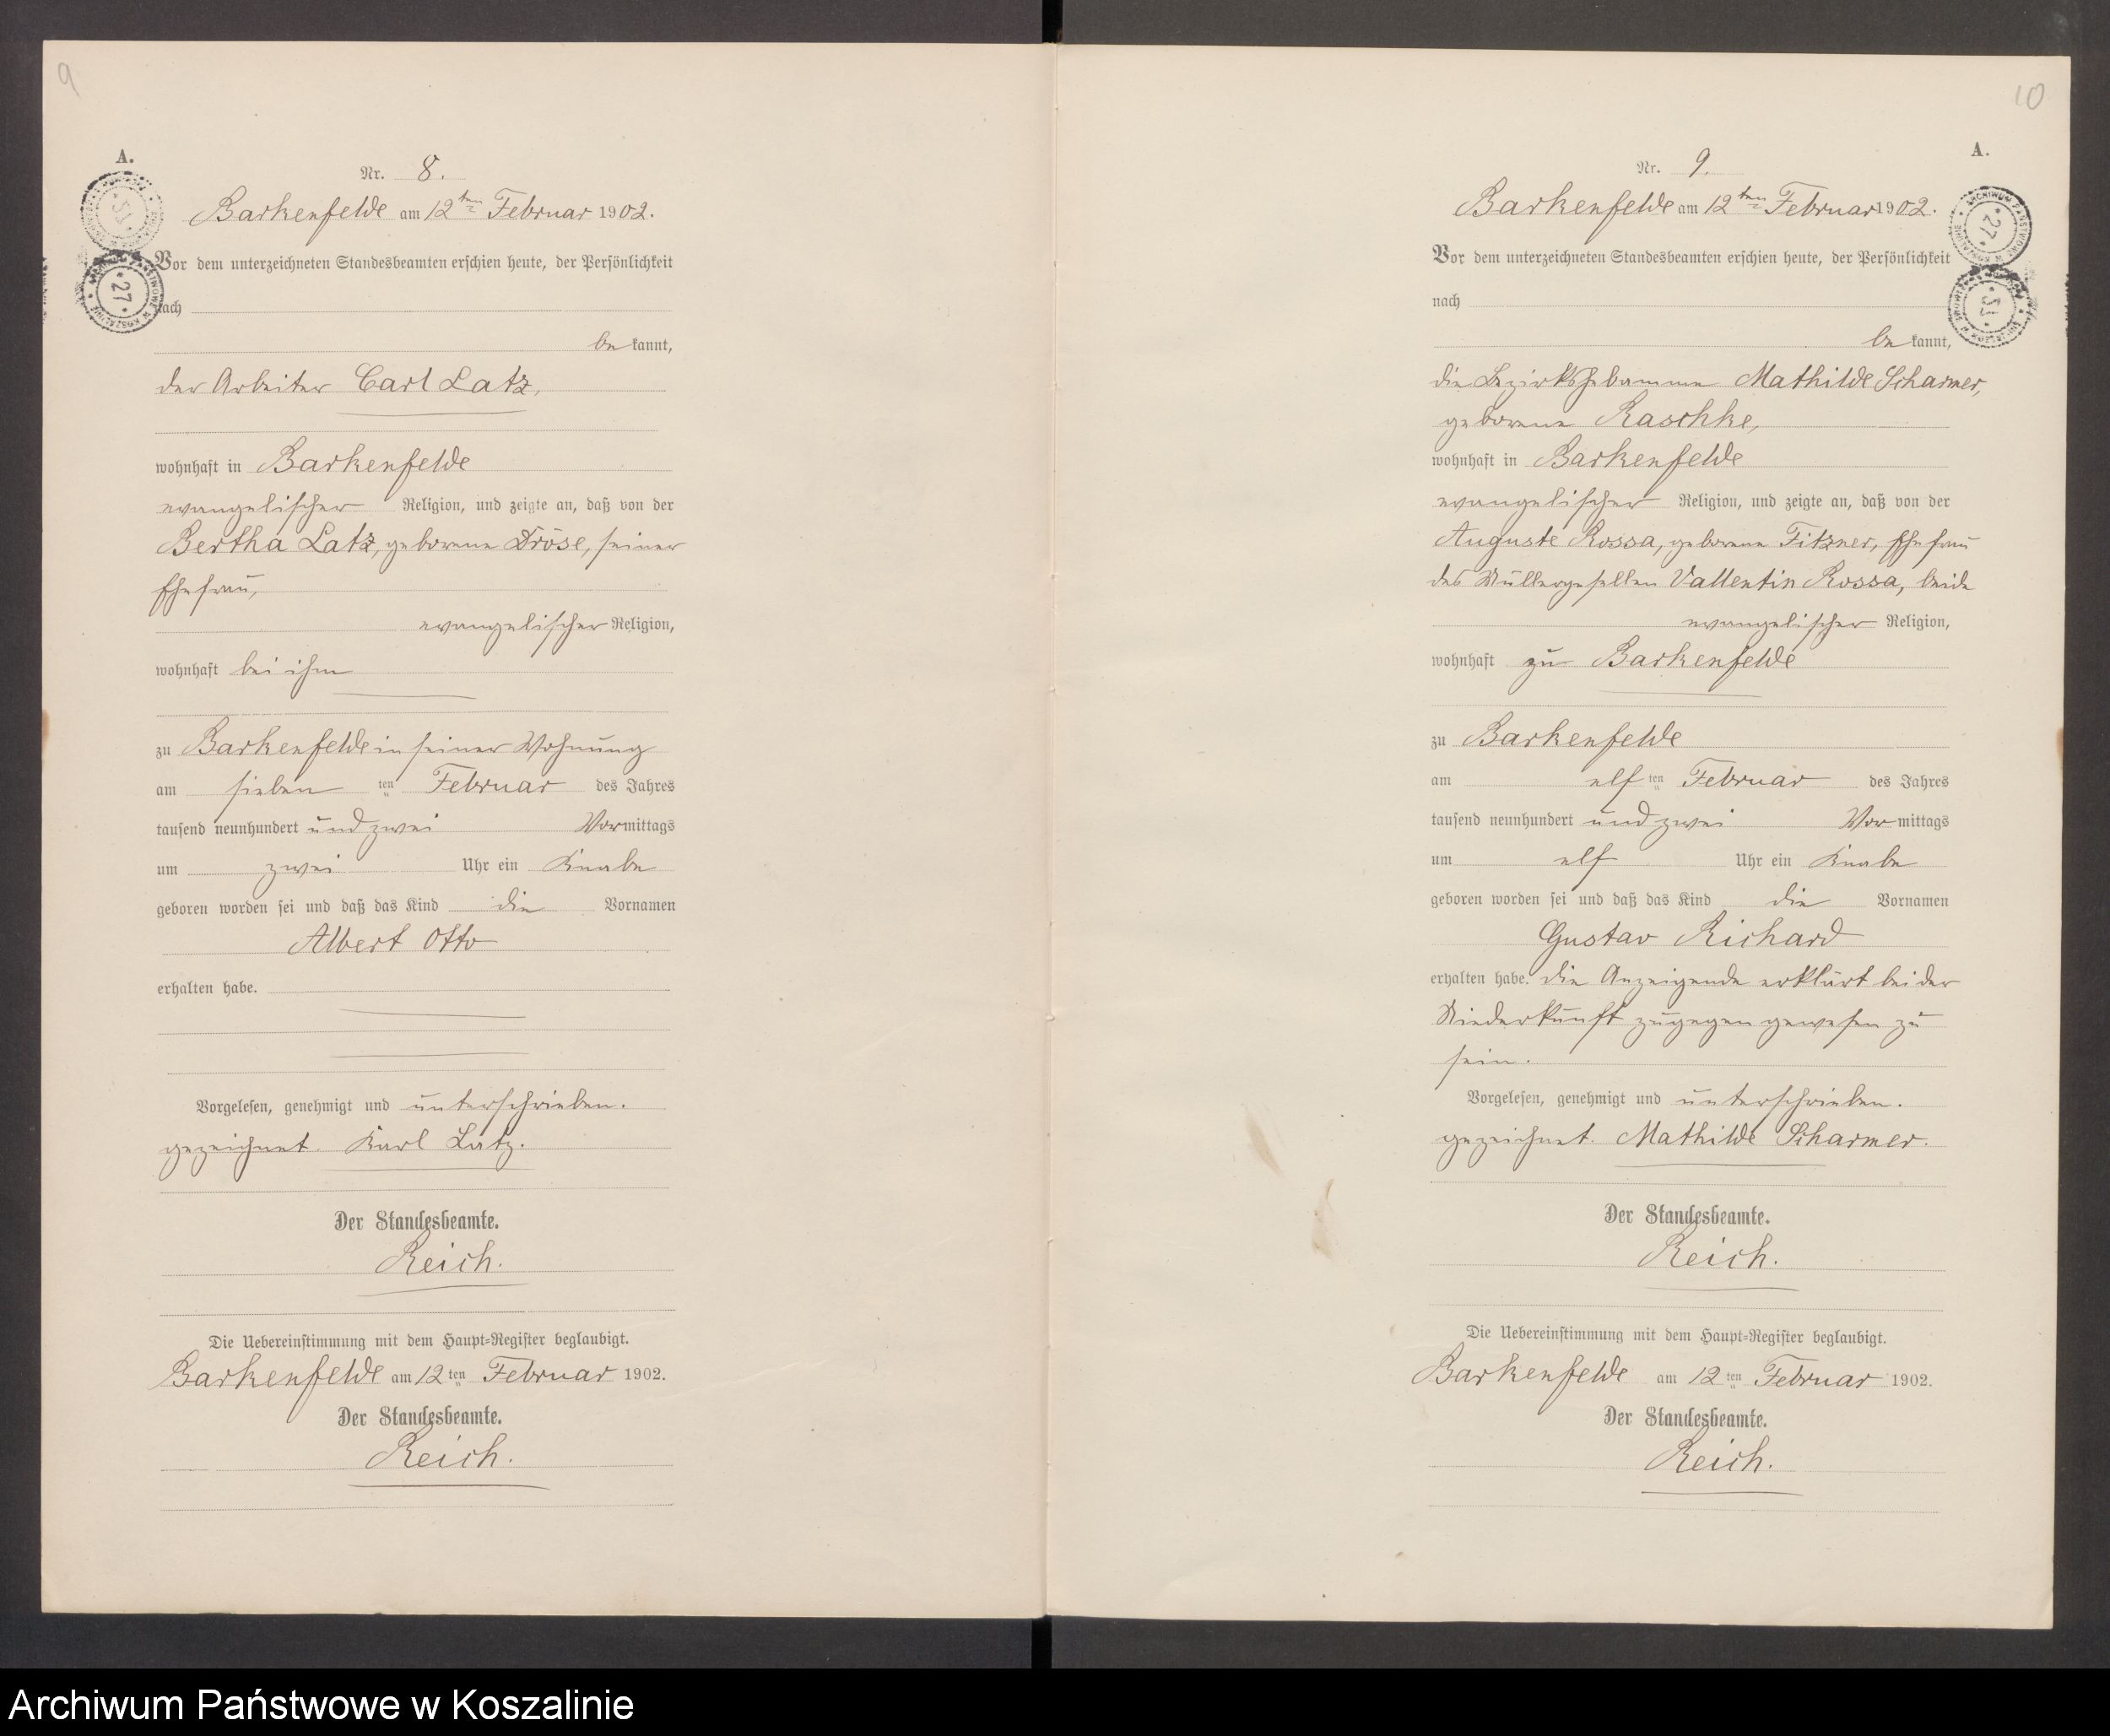 9
A.
Nr. 8.
Barkenfelde am 12ten Februar 1902.
Vor dem unterzeichneten Standesbeamten erschien heute, der Persönlichkeit
nach
be kannt,
der Arbeiter Carl Latz,
wohnhaft in Barkenfelde
evangelischer Religion, und zeigte an, daß von der
Bertha Latz, geborene Dröse, seiner
Ehefrau,
evangelischer Religion,
wohnhaft bei ihm
zu Barkenfelde in seiner Wohnung
am sieben ten Februar des Jahres
tausend neunhundert und zwei Vormittags
um zwei Uhr ein Knabe
geboren worden sei und daß das Kind die Vornamen
Albert Otto
erhalten habe.
Vorgelesen, genehmigt und unterschrieben.
gezeichnet. Karl Latz.
Der Standesbeamte.
Reich.
Die Uebereinstimmung mit dem Haupt=Register beglaubigt.
Barkenfelde am 12ten Februar 1902.
Der Standesbeamte.
Reich.
ARCHIWUM PAŃSTWOWE W KOSZALINIE
27
10
A.
Nr. 9.
Barkenfelde am 12ten Februar 1902.
Vor dem unterzeichneten Standesbeamten erschien heute, der Persönlichkeit
nach
be kannt,
die Bezirkshebamme Mathilde Scharmer,
geborene Raschke,
wohnhaft in Barkenfelde
evangelischer Religion, und zeigte an, daß von der
Auguste Rossa, geborene Fitzner, Ehefrau
des Müllergesellen Vallentin Rossa, beide
evangelischer Religion,
wohnhaft zu Barkenfelde
zu Barkenfelde
am elf ten Februar des Jahres
tausend neunhundert und zwei Vor mittags
um elf Uhr ein Knabe
geboren worden sei und daß das Kind die Vornamen
Gustav Richard
erhalten habe. Die Anzeigende erklärt bei der
Niederkunft zugegen gewesen zu
sein.
Vorgelesen, genehmigt und unterschrieben.
gezeichnet. Mathilde Scharmer.
Der Standesbeamte.
Reich.
Die Uebereinstimmung mit dem Haupt=Register beglaubigt.
Barkenfelde am 12ten Februar 1902.
Der Standesbeamte.
Reich.
ARCHIWUM PAŃSTWOWE W KOSZALINIE
27
Archiwum Państwowe w Koszalinie